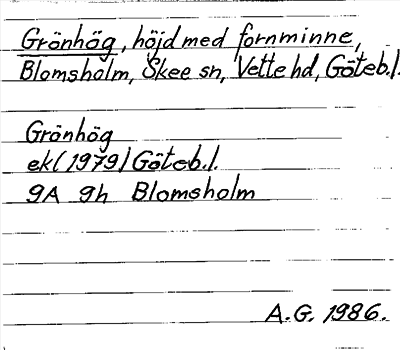 Grönhög, höjd med fornminne,
Blomsholm, Skee sn, Vette hd, Göteb.l.
Grönhög
ek (1979) Göteb.l.
9A 9h Blomsholm
A.G. 1986.